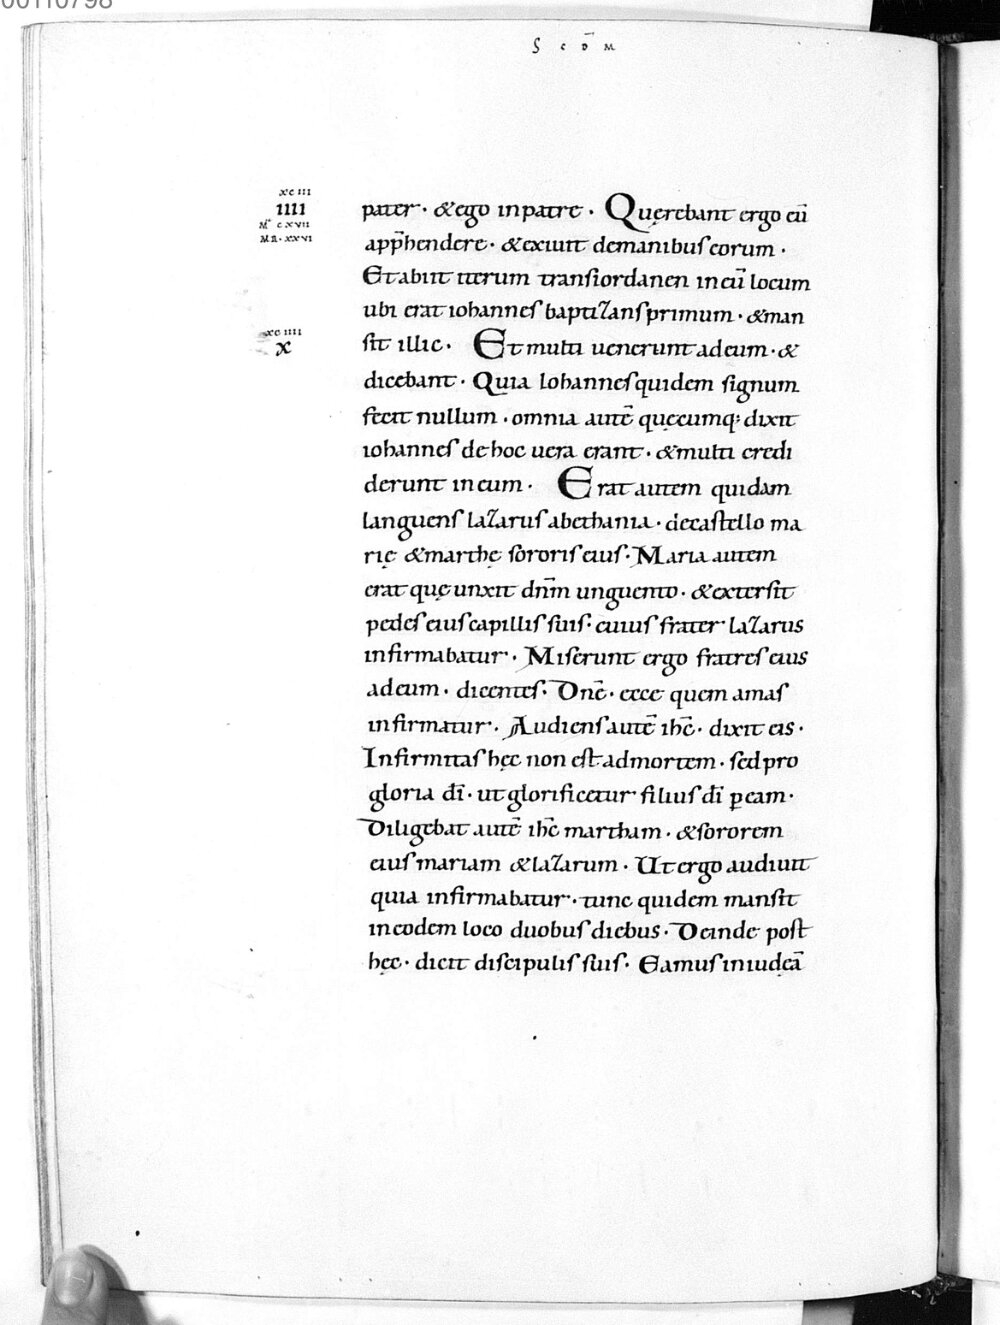 S c d̄ m
xciii
iiii
Mt̄ cxvii
MR·xxvi
pater · & ego in patre · Quęrebant ergo eū
app̄hendere · & exiuit de manibus eorum ·
Et abiit iterum trans iordanen in eū locum
ubi erat iohannes baptizans primum · & man
xciiii
x
sit illic · Et multi uenerunt ad eum · &
dicebant · Quia Iohannes quidem signum
fecit nullum · omnia autē quęcumq; dixit
iohannes de hoc uera erant · & multi credi
derunt in eum · Erat autem quidam
languens lazarus a bethania · de castello ma
rię & marthę sororis eius · Maria autem
erat quę unxit dn̄m unguento · & extersit
pedes eius capillis suis · cuius frater lazarus
infirmabatur · Miserunt ergo fratres eius
ad eum · dicentes · Dn̄e · ecce quem amas
infirmatur · Audiens autē ih̄c · dixit eis ·
Infirmitas hęc non est ad mortem · sed pro
gloria dī · ut glorificetur filius dī ꝑ eam ·
Diligebat autē ih̄c martham · & sororem
eius mariam & lazarum · Ut ergo audiuit
quia infirmabatur · tunc quidem mansit
in eodem loco duobus diebus · Deinde post
hęc · dicit discipulis suis · Eamus in iudęā